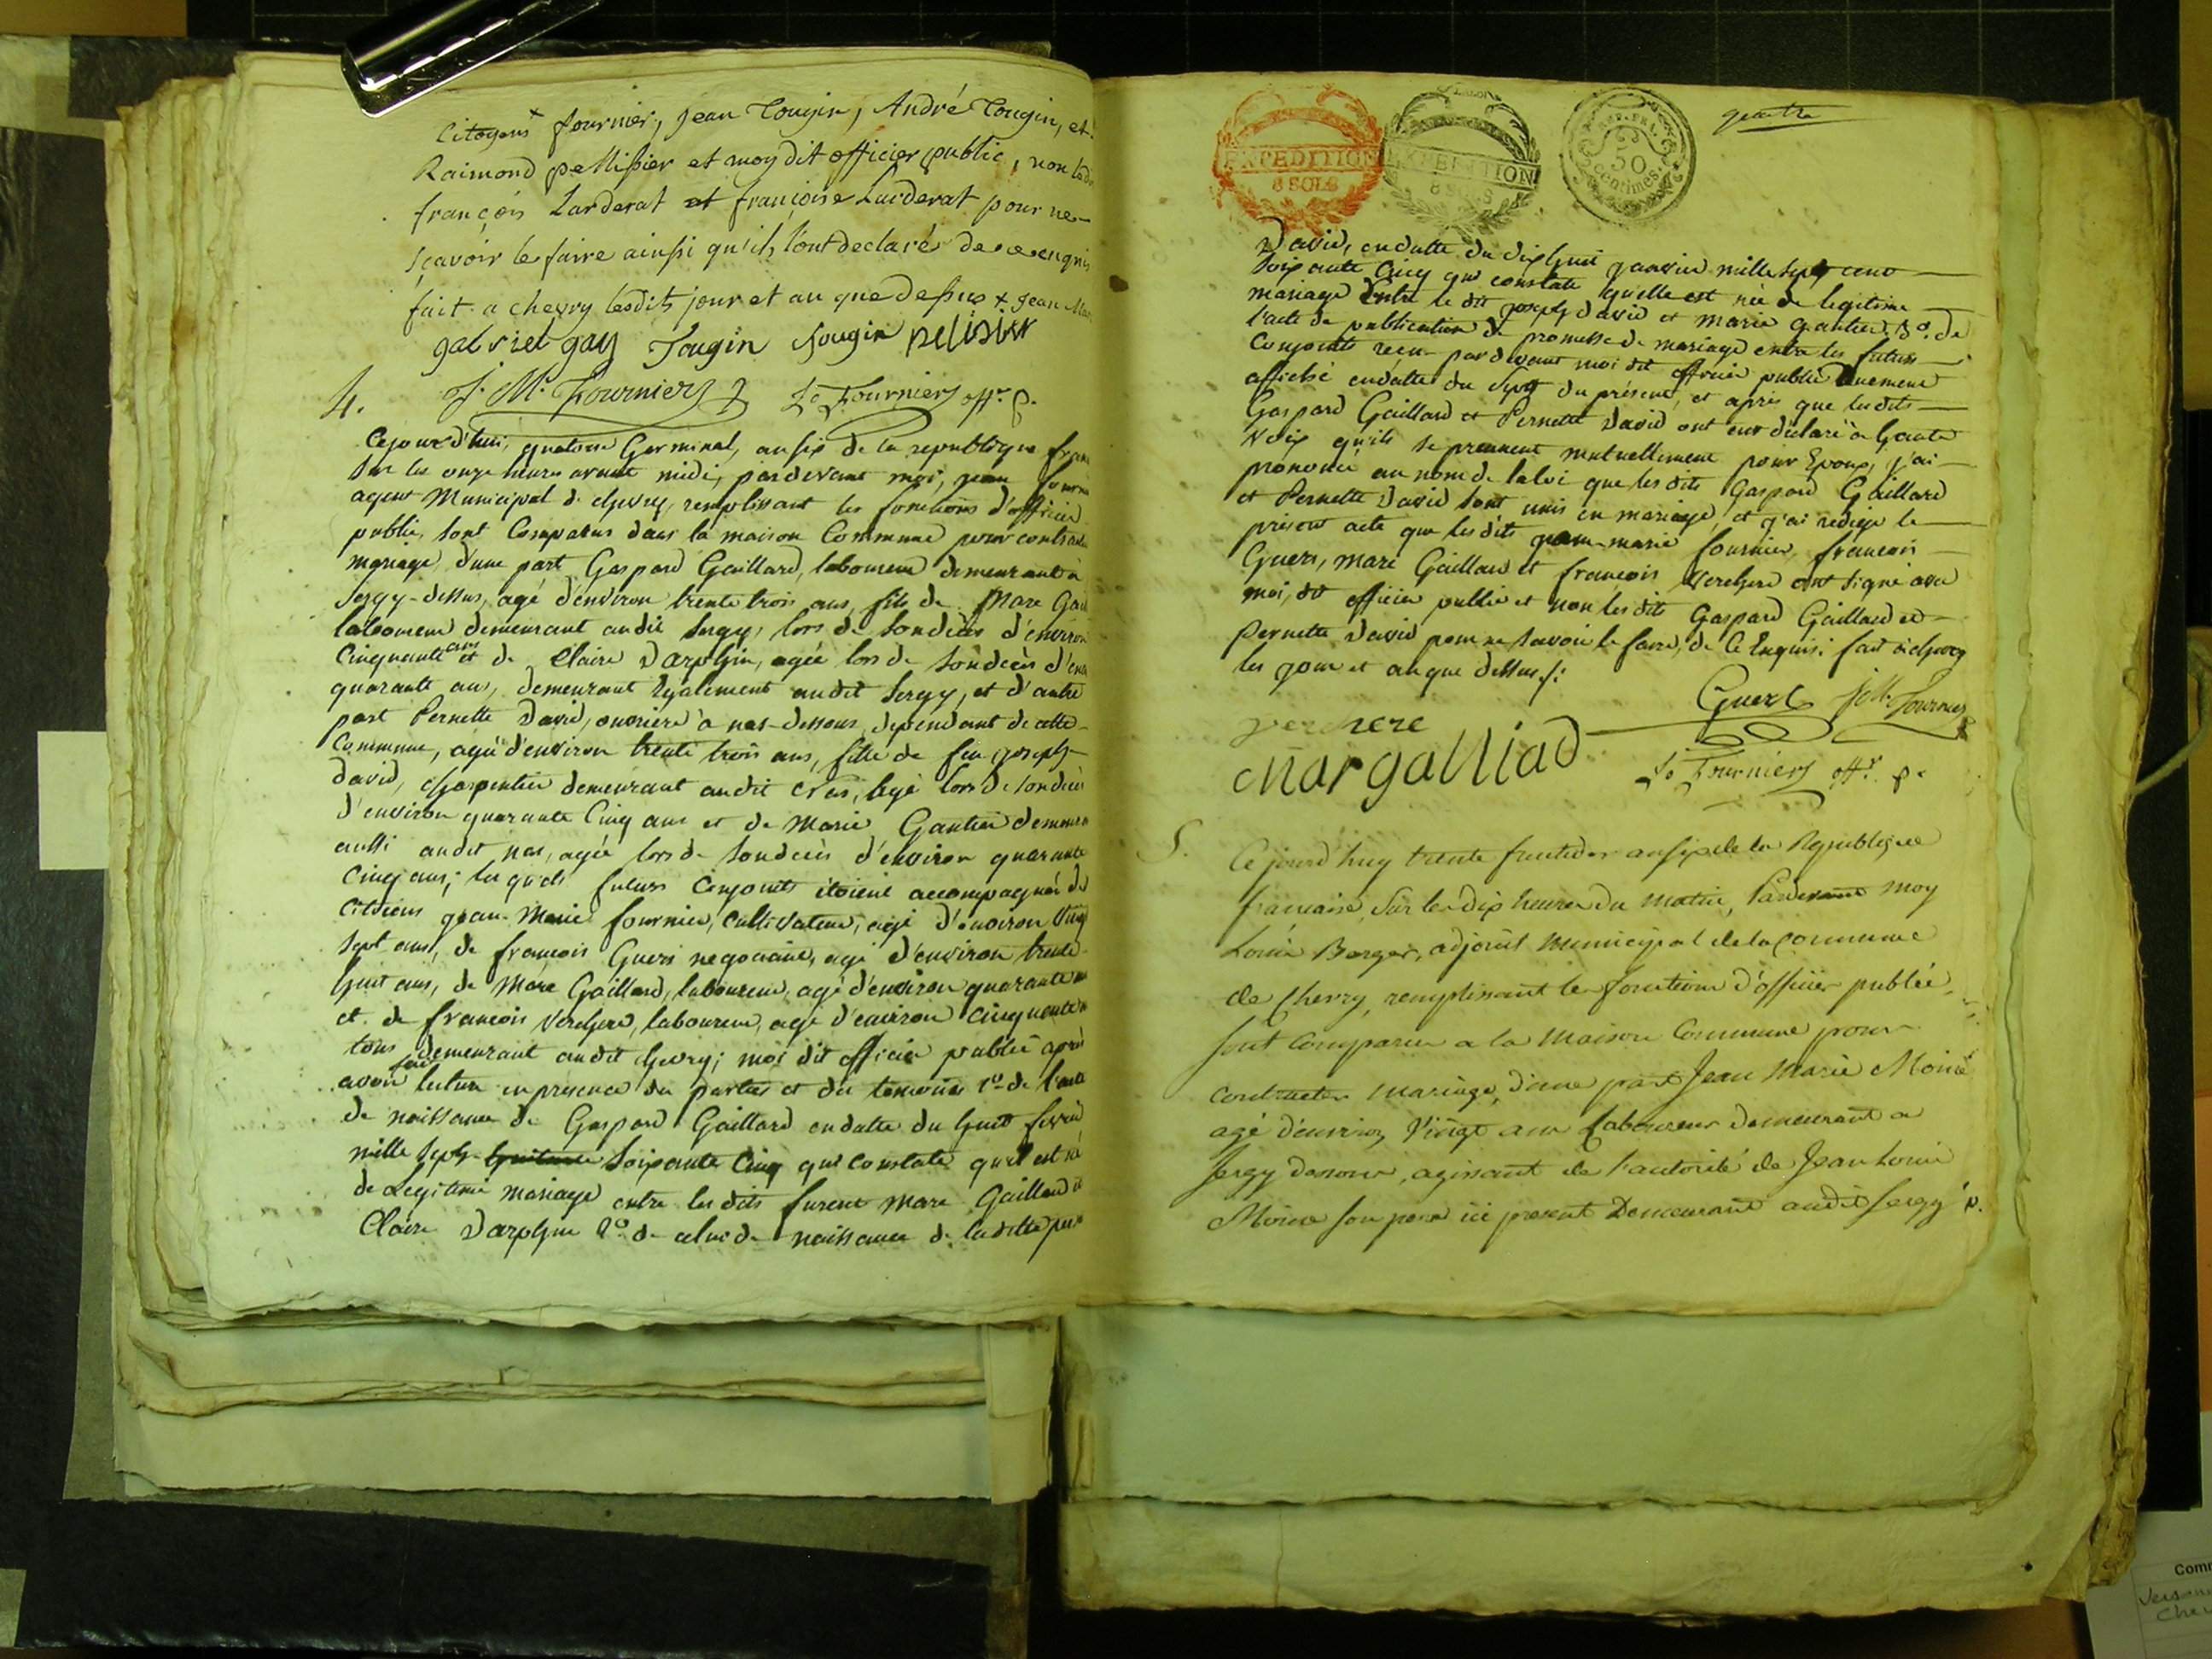 Citoyens fournier, Jean Tougin, André Tougin, et
Raimond pellissier et moy dit officier public, non les
françois Larderat et françoise Larderat pour ne
sçavoir le faire ainsi qu'ils l'ont declaré de ce enquis
fait a chevry lesdits jour et an que dessus + Jean
gabriel gay Tougin Tougin pelissier
J. M. Fournier Js Fournier offr. p.
4.
Cejourd'hui, quatorse Germinal, an six de la republique
sur les onze heures avant midi, pardevant moi, jean
agent Municipal de chevry, remplissant les fonctions d'officier
public, sont Comparus dans la maison Commune pour
mariage, d'une part Gaspard Gaillard, laboureur demeurant à
Sergy-dessus, agé d'environ trente trois ans, fils de Marc
laboureur demeurant audit Sergy, lors de son décès d'environ
Cinquante ans et de Claire Darphin, agée lors de son décès
quarante ans, demeurant Egalement audit Sergy, et d'autre
part Pernette David, ouvrière à nas-dessous, dependant de cette
Commune, agée d'environ trente trois ans, fille de feu joseph
David, charpentier demeurant audit agé lors de son décès
d'environ quarante Cinq ans et de Marie Gautier
aussi audit nas, agée lors de son décès d'environ quarante
Cinq ans; les quels futurs Conjoints étoient accompagnés des
Citoiens jean-Marie fournier, Cultivateur, agé d'environ Vingt
sept ans, de françois Guers negociant, agé d'environ trente
huit ans, de Marc Gaillard, laboureur, agé d'environ quarante
et de françois Verchere, laboureur, agé d'environ Cinquante
tous demeurant audit chevry; moi dit officier public après
avoir fait lecture en presence des parties et des temoins 1o de l'acte
de naissance de Gaspard Gaillard en datte du huit
mille sept soixante Cinq qui constate qu'il est né
de Legitime mariage entre les dits furent Marc Gaillard
Claire Darphin 2o de celui de naissance de la ditte
quatre
EXPEDITION
8 SOLS
EXPEDITION
8 SOLS
50
centimes.
David, en datte du dixhuit janvier mille sept cent
soixante Cinq qui constate qu'elle est née de legitime
mariage Entre le dit joseph David et marie gautier, 3o. de
l'acte de publication de promesse de mariage entre les futurs
Conjoints reçu pardevant moi dit officier public
affiché en datte du sept du présent, et après que lesdits
Gaspard Gaillard et Pernette David ont eut déclaré à haute
Voix qu'ils se prennent mutuellement pour Epoux, j'ai
prononcé au nom de la loi que les dits Gaspard Gaillard
et Pernette David sont unis en mariage, et j'ai redigé le
présent acte que les dits jean-marie fournier, françois
Guers, Marc Gaillard et françois Verchere ont signé avec
moi, dit officier public et non les dits Gaspard Gaillard et
Pernette David pour ne savoir le faire, de Ce Enquis. fait à chevry
les jour et an que dessus
Guers J M. Fournier
verchere
Mar galliad
Js Fournier offr. p.
5.
Ce jourd'huy trente fructidor an six de la Republique
francaise, Sur les dix heures du matin, Pardevant moy
Louis Berger, adjoint municipal de la Commune
de Chevry, remplissant les fonctions d'officier public,
sont comparus a la maison Commune pour
contracter mariage, d'une part Jean Marie Moine
agé d'environ Vingt ans Laboureur demeurant a
Sergy dessous, agissant de l'autorité de Jean Louis
Moine son pere ici present Demeurant audit sergy